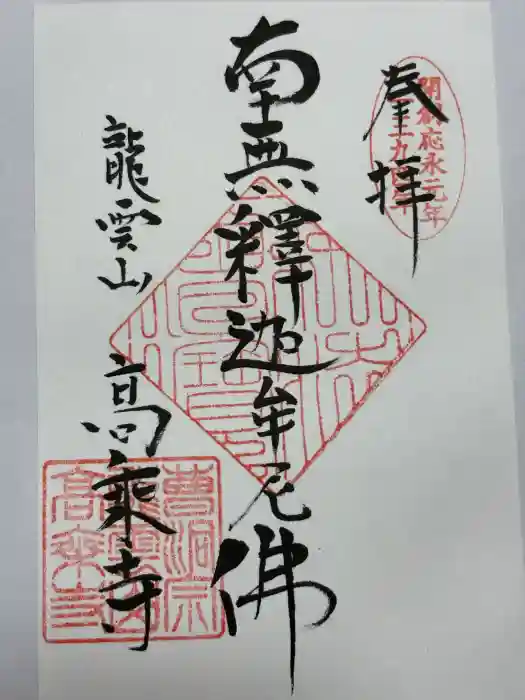 奉拝
開創応永元年
南無釋迦牟尼佛
龍雲山
高乗寺
曹洞宗
龍雲山
高乗寺